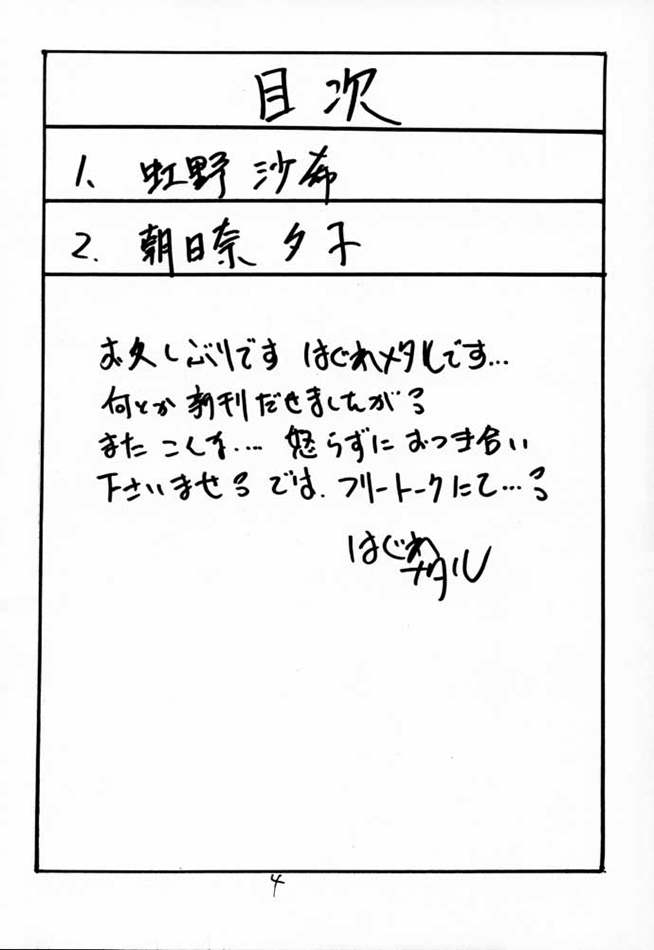 目次
1、虹野 沙希
2. 朝日奈 夕子
お久しぶりです はぐれメタルです…
何とか新刊だせましたがろ
また こんな…. 怒らずに おつき合い
下さいませろ では. フリートークにて…ろ
はぐれ
メタル
4